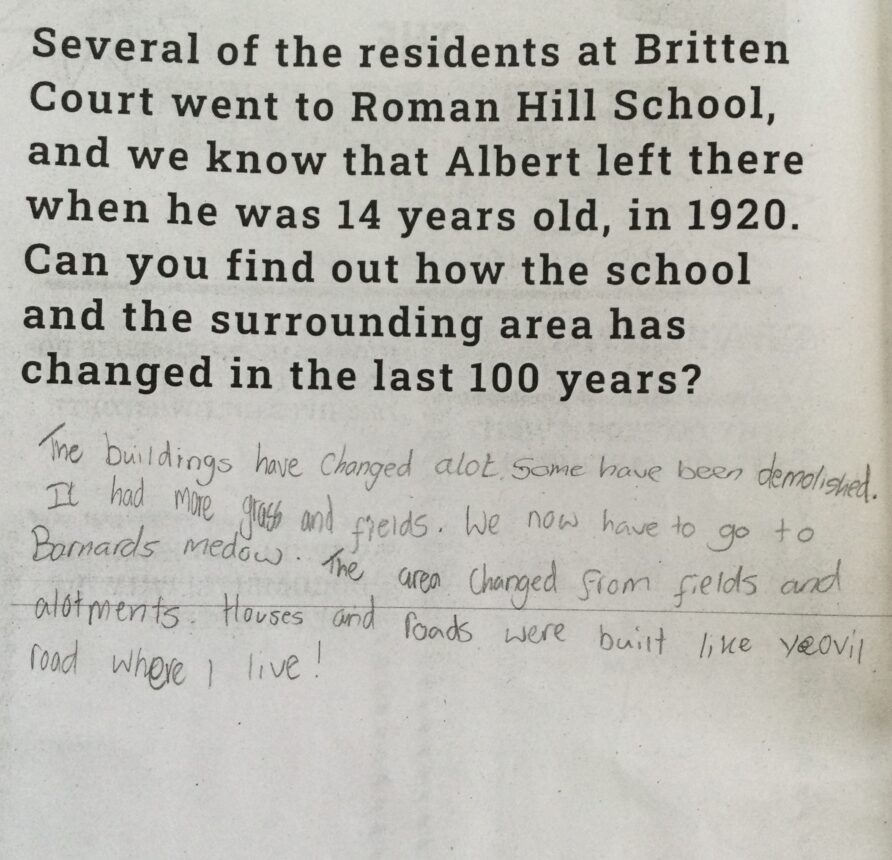 Several of the residents at Britten
Court went to Roman Hill School,
and we know that Albert left there
when he was 14 years old, in 1920.
Can you find out how the school
and the surrounding area has
changed in the last 100 years?
The buildings have changed alot. Some have been demolished.
It had more grass and fields. We now have to go to
Barnards medow. The area changed from fields and
alotments. Houses and roads were built like yeovil
road where I live!